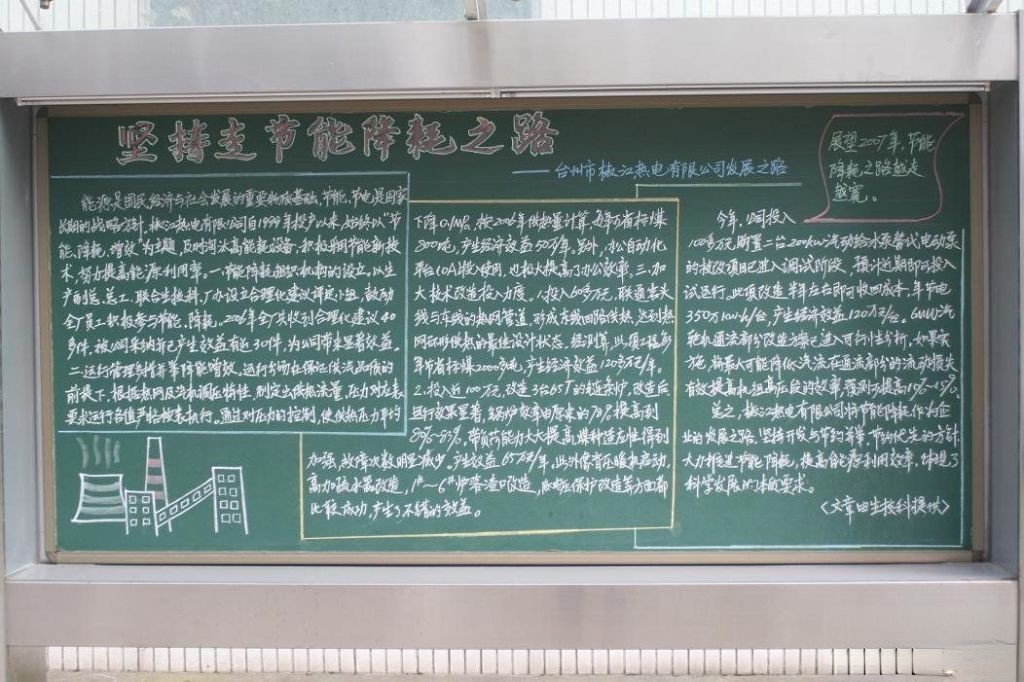 坚持走节能降耗之路
——台州市椒江热电有限公司发展之路
能源是国民经济与社会发展的重要物质基础,节能、节电是国家
长期的战略方针,椒江热电有限公司自1999年投产以来,始终以“节
能、降耗、增效”为主题,及时淘汰高能耗设备,积极采用节能新技
术,努力提高能源利用率。一.节能降耗组织机构的设立,以生
产副总、总工,联合生技科,厂办设立合理化建议评定小组,鼓励
全厂员工积极参与节能、降耗。2006年全厂共收到合理化建议40
多件,被公司采纳并已产生效益有近30件,为公司带来显著效益。
二.运行管理多措并举降能增效,运行分场在保证供汽品质的
前提下,根据热网及汽机调压特性,制定出供热流量,压力对应表
要求运行各值严格按表执行。通过对压力的控制,使供热压力平均
下降0.1MPa,按2006年供热量计算,每年可省标煤
200吨,产生经济效益50万/年。另外,办公自动化
平台(OA)投入使用,也极大提高了办公效率。三.加
大技术改造投入力度。1.投入60多万元,联通岩头
线与东线的热网管道,形成东线回路供热,达到热
网环形供热的最佳设计状态,经测算,此项工程每
年节省标煤2000多吨,产生经济效益120多万/年。
2.投入近100万元,改造3台65T的链条炉,改造后
运行效果显著,锅炉效率由原来的78%提高到
80%~83%,带负荷能力大大提高,煤种适应性得到
加强,故障次数明显减少。产生效益65万元/年,此外像背压暖机启动,
高加疏水器改造,1#~6#炉落渣口改造,低电压保护改造等方面都
比较成功,产生了不错的效益。
展望2007年,节能
降耗之路越走
越宽。
今年,公司投入
100多万,购置二台200kW汽动给水泵替代电动泵
的技改项目已进入调试阶段,预计近期即可投入
试运行。此项改造半年左右即可收回成本,年节电
350万kW·h/台,产生经济效益120万/台。6MW汽
轮机通流部分改造方案已进入可行性分析,如果实
施,将最大可能降低汽流在通流部分的流动损失
有效提高机组高压段的效率,预测可提高10%~15%。
总之,椒江热电有限公司将节能降耗作为企
业的发展之路,坚持开发与节约并举,节约优先的方针,
大力推进节能降耗,提高能源利用效率,体现了
科学发展的本质要求。
〈文章由生技科提供〉